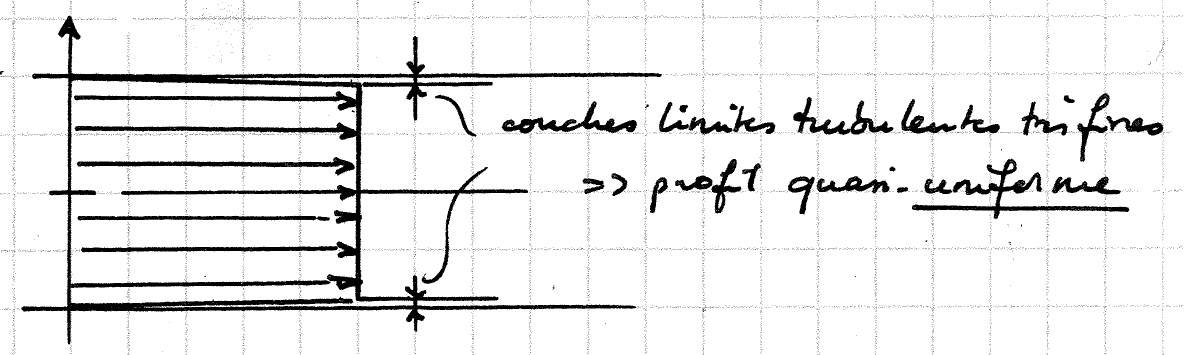 couches limites turbulentes très fines
=> profil quasi-uniforme